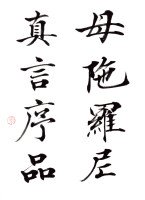 母陁羅尼
真言序品